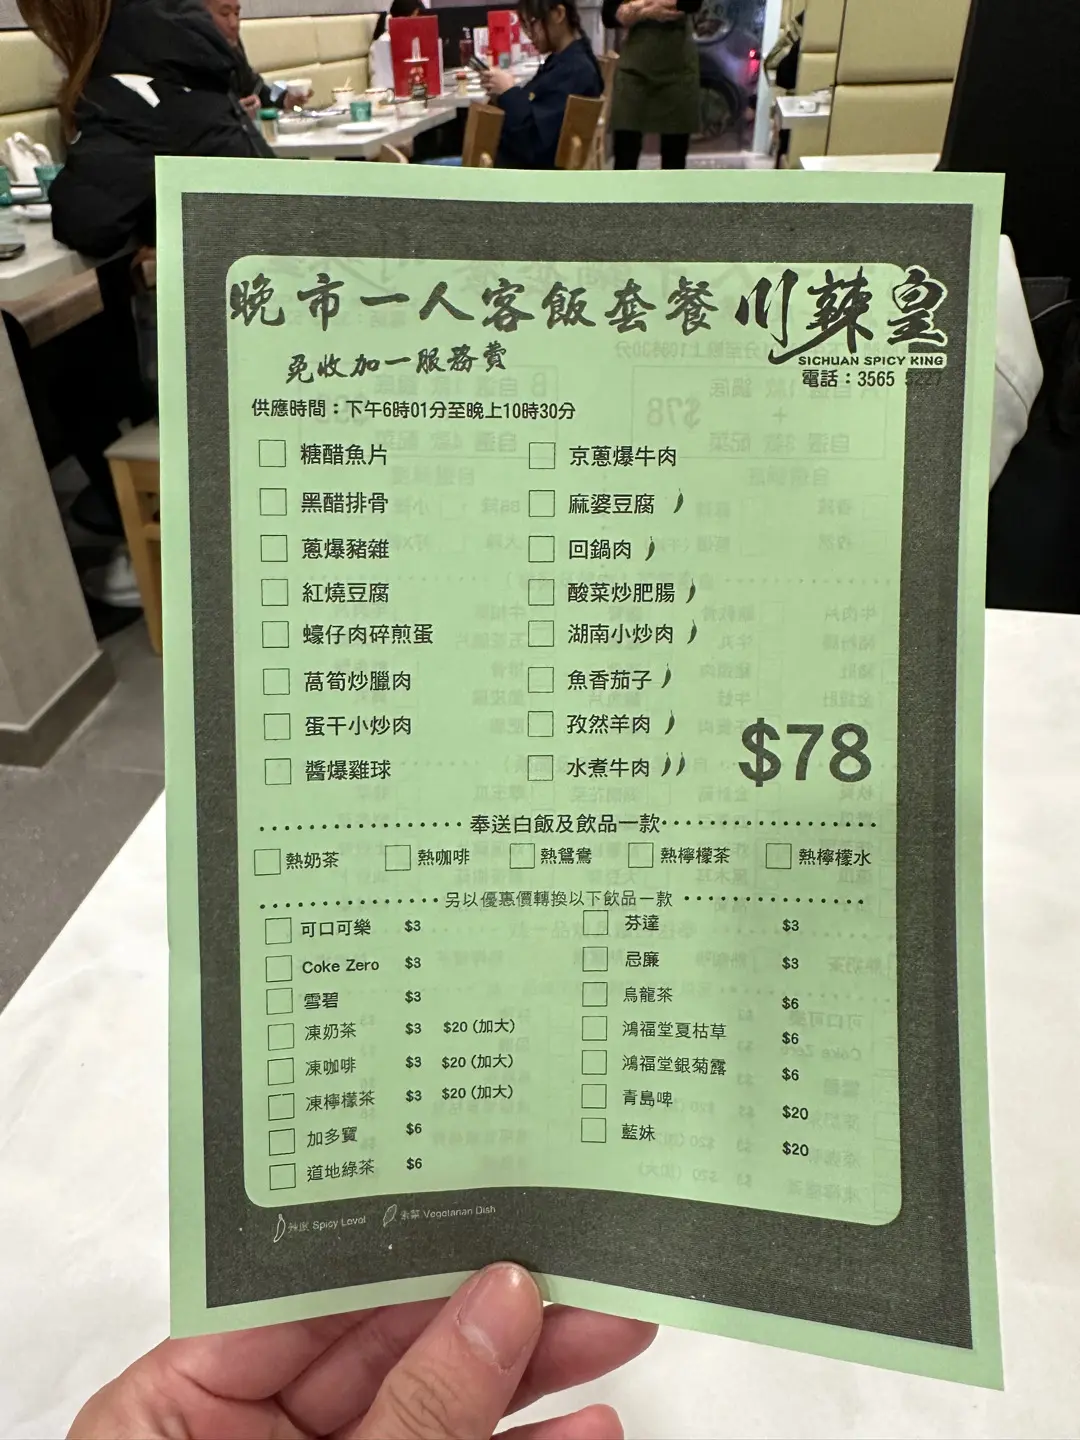 晚市一人客飯套餐 川辣皇
SICHUAN SPICY KING
免收加一服務費
電話：3565 5227
供應時間：下午6時01分至晚上10時30分
糖醋魚片
京蔥爆牛肉
黑醋排骨
麻婆豆腐
蔥爆豬雜
回鍋肉
紅燒豆腐
酸菜炒肥腸
蠔仔肉碎煎蛋
湖南小炒肉
萵筍炒臘肉
魚香茄子
蛋干小炒肉
孜然羊肉
醬爆雞球
水煮牛肉
$78
奉送白飯及飲品一款
熱奶茶 熱咖啡 熱鴛鴦 熱檸檬茶 熱檸檬水
另以優惠價轉換以下飲品一款
可口可樂 $3
芬達 $3
Coke Zero $3
忌廉 $3
雪碧 $3
烏龍茶 $6
凍奶茶 $3 $20 (加大)
鴻福堂夏枯草 $6
凍咖啡 $3 $20 (加大)
鴻福堂銀菊露 $6
凍檸檬茶 $3 $20 (加大)
青島啤 $20
加多寶 $6
藍妹 $20
道地綠茶 $6
辣度 Spicy Level 素菜 Vegetarian Dish